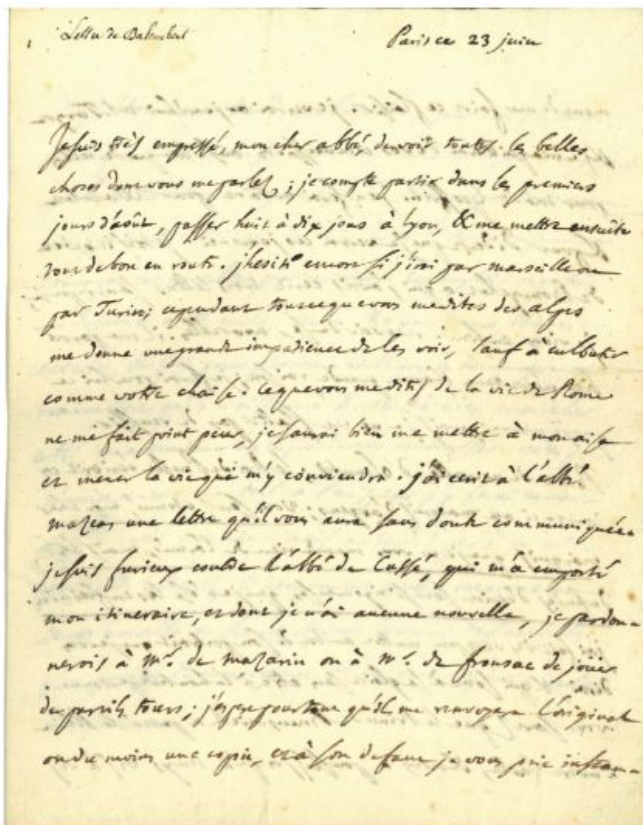 Lettre de Dalembert
Paris ce 23 juin
Je suis très empressé, mon cher abbé, de voir toutes les belles
choses dont vous me parlez ; je compte partir dans les premiers
jours d'août, passer huit à dix jours à Lyon, & me mettre ensuite
tout de bon en route. j'hesite encore si j'irai par marseille ou
par Turin ; cependant tout ce que vous me dites des alpes
me donne une grande impatience de les voir, sauf à culbuter
comme votre chaise. ce que vous me dites de la vie de Rome
ne me fait point peur, je saurai bien me mettre à mon aise
et mener la vie qui m'y conviendra. j'ai ecrit à l'abbé
une lettre qu'il vous aura sans doute communiquée.
je suis furieux contre l'abbé de qui m'a emporté
mon itineraire, et dont je n'ai aucune nouvelle, je pardon-
nerois à Mr. de mazarin ou à Mr. de fronsac de jouer
de pareils tours ; j'espere pourtant qu'il me renvoyera l'original
ou du moins une copie, et à son defaut je vous prie instam-